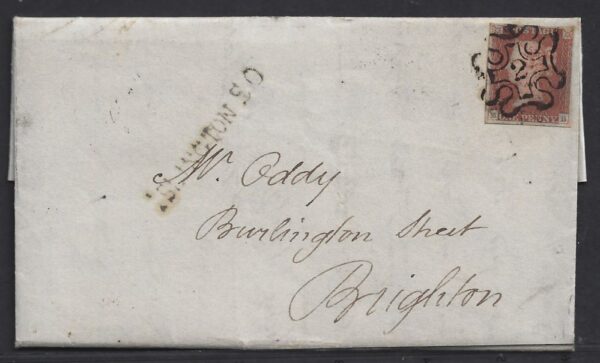 2
ONE PENNY
ISLINGTON S.O
Mr. Oddy
Burlington Street
Brighton